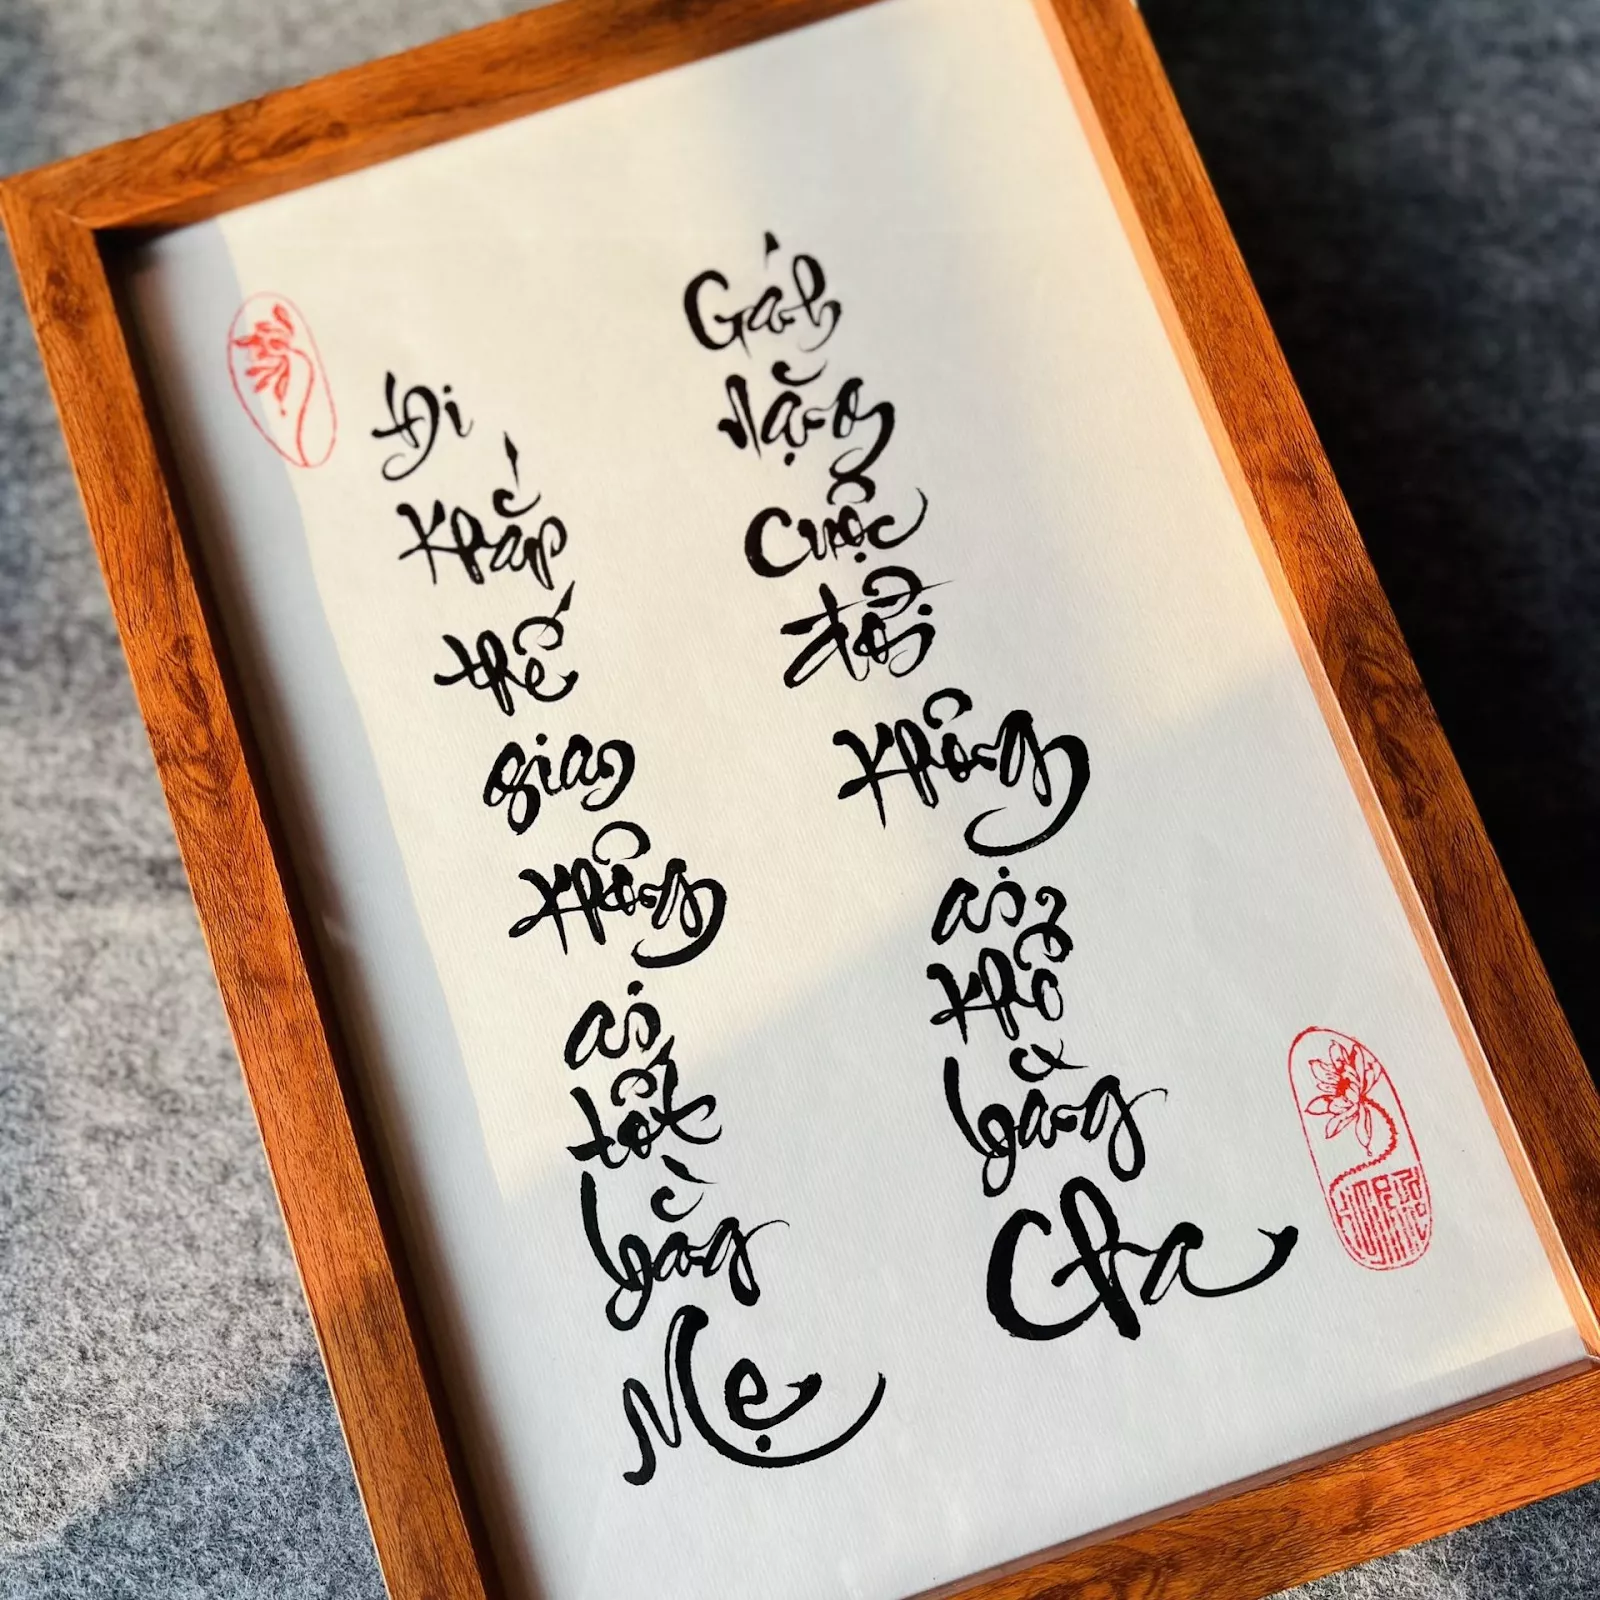 Đi
Khắp
thế
gian
Không
ai
tốt
bằng
Mẹ
Gánh
Nặng
Cuộc
đời
Không
ai
Khổ
bằng
Cha